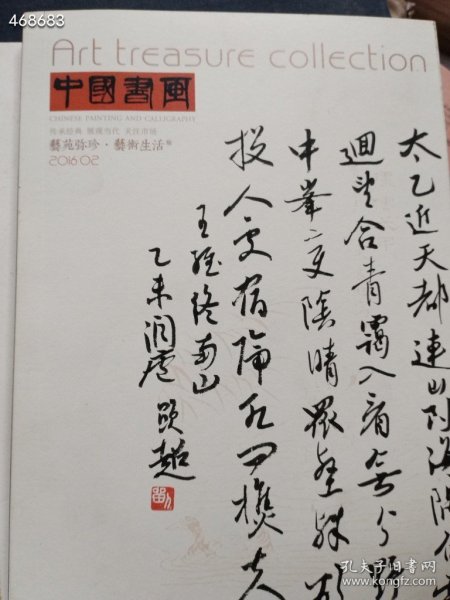 468683
Art treasure collection
中國書画
CHINESE PAINTING AND CALLIGRAPHY
传承经典 展现当代 关注市场
藝苑弥珍·藝術生活
2016.02
太乙近天都連山到海隅白
迴望合青靄入看無分野
中峯變陰晴眾壑殊欲
投人處宿隔水問樵夫
王維終南山
乙未潤廬
孔夫子旧书网